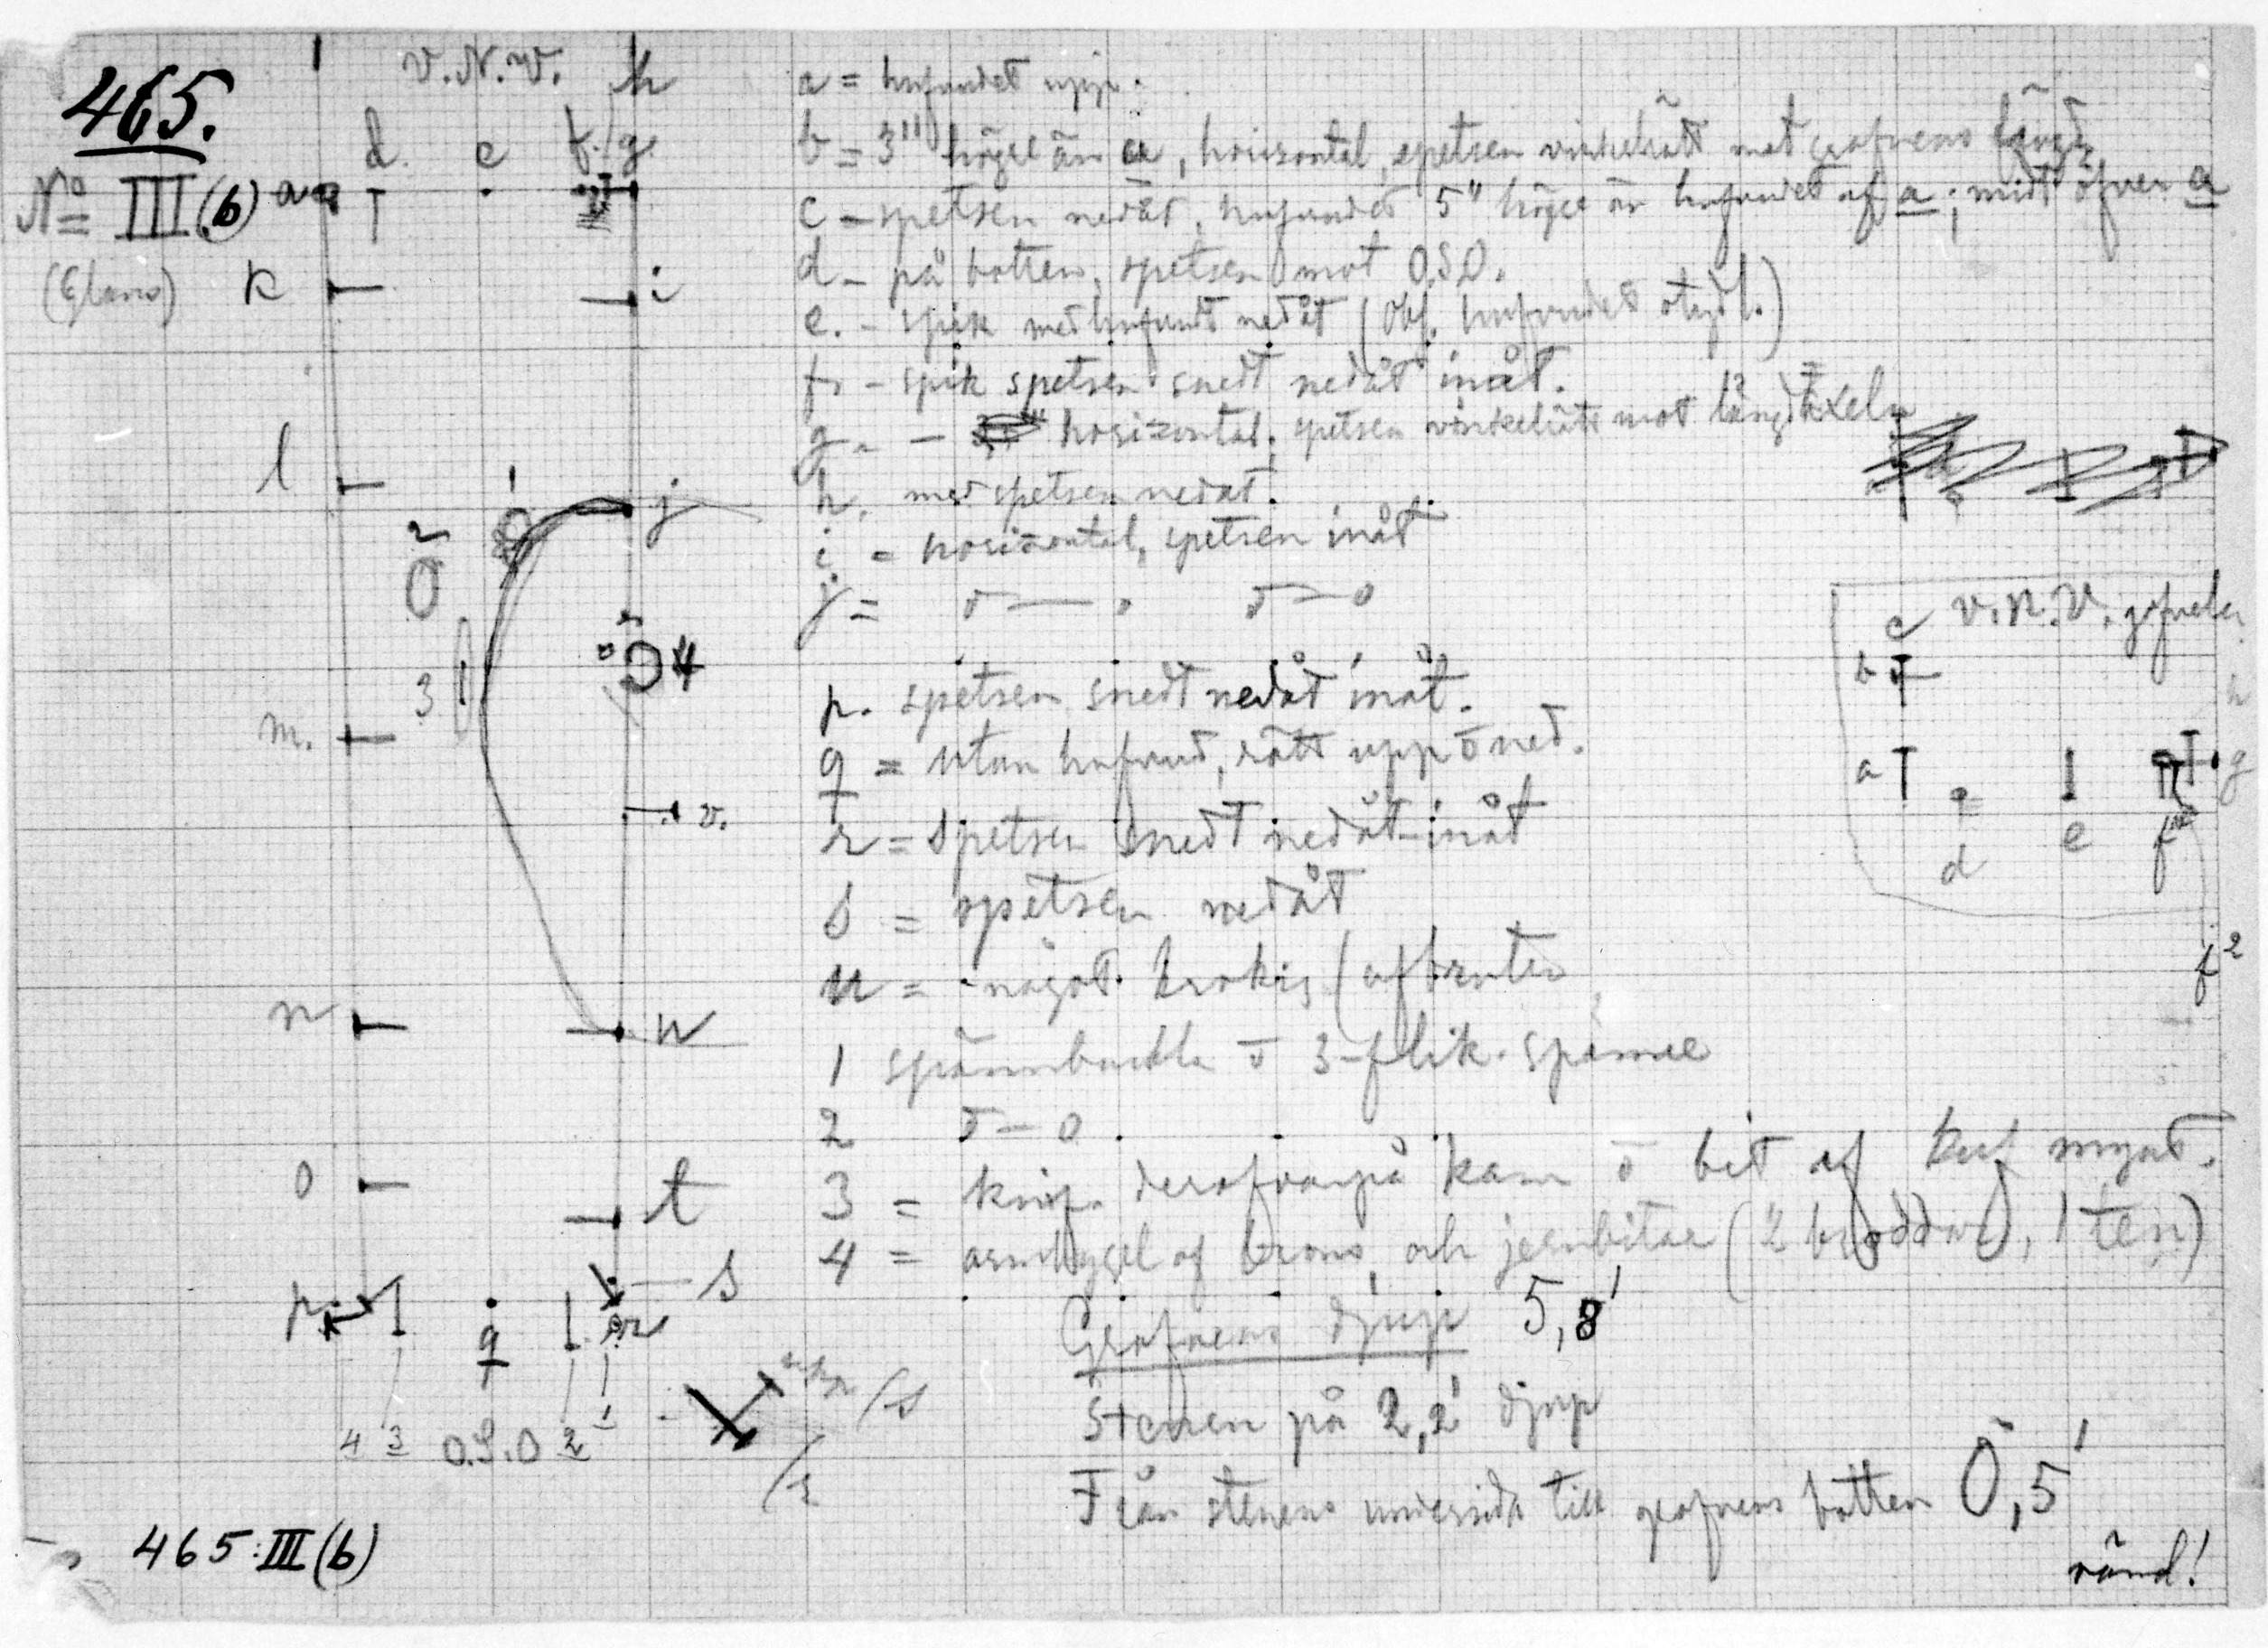 465.
No III (b)
(Elams)
V.N.V. h
d. e f. g.
a
k i
l j
1
2
3
4
m.
v.
n w
o t
p. q r s
4 3 O.S.O 2 1
s
r
a = hufvudet upp.
b = 3" högre än a, horisontal, spetsen vinkelrätt mot grafvens längd.
c – spetsen nedåt, hufvudet 5" högre än hufvudet af a; midt öfver a
d – på botten, spetsen mot O.S.O.
e. – spik med hufvudt nedåt (Obs. hufvudet otydl.)
f. – spik spetsen snedt nedåt inåt.
g. – horizontal, spetsen vinkelrätt mot längdaxeln
h. med spetsen nedåt.
i = horizontal, spetsen inåt
j = ō — o ō — o
p. spetsen snedt nedåt inåt.
q = utan hufvud, rätt upp ō ned.
r = spetsen snedt nedåt-inåt
s = spetsen nedåt
u = något krokig (afbruten
1 spännbuckla ō 3-flik. spänne
2 ō — o
3 = knif. derofvanpå kam ō bit af kuf. mynt.
4 = armbygel af brons och jernbitar (2 broddar, 1 ten)
Grafvens djup 5,8'
Stenen på 2,2' djup
Från stenens undersida till grafvens botten 0,5'
vänd!
V.N.V. gafveln
c
b
a
d e f
g
h
f2
465:III(b)